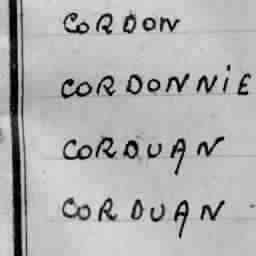 CORDON
CORDONNIE
CORDUAN
CORDUAN